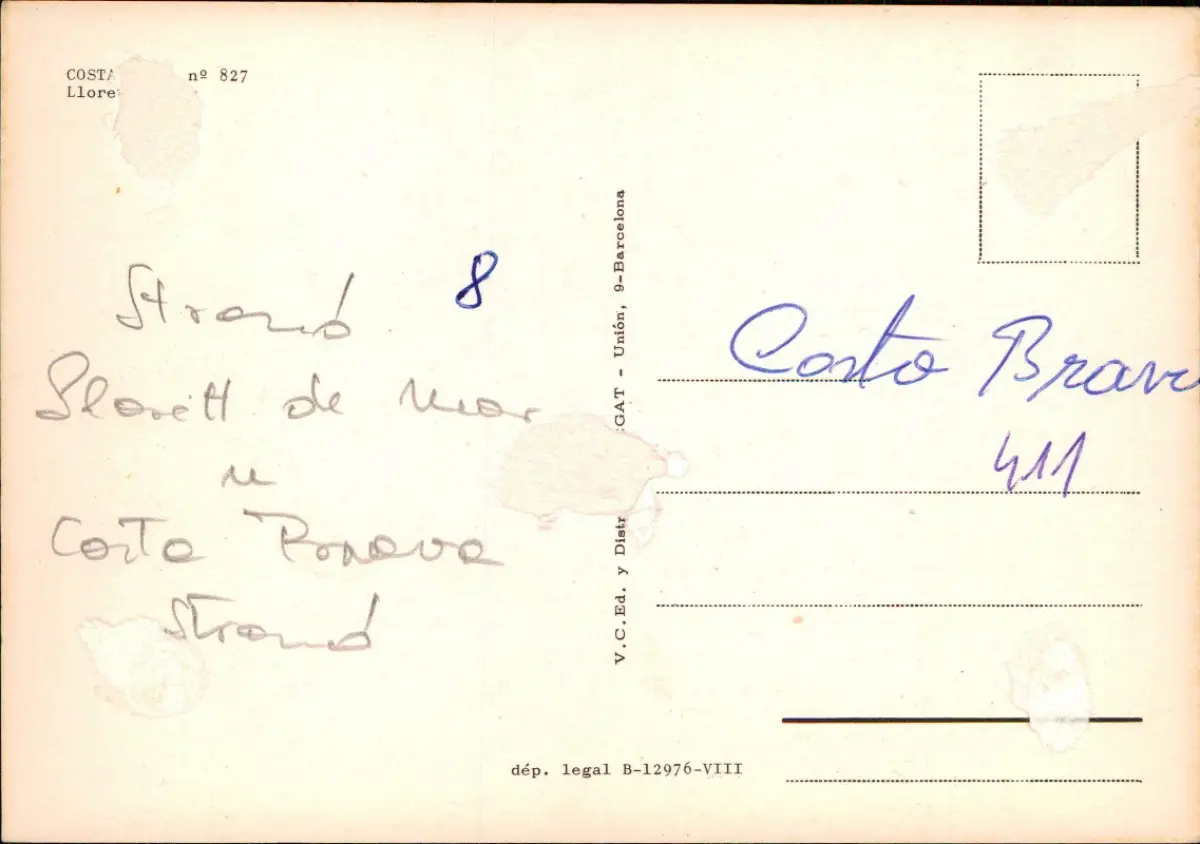 COSTA nº 827
Lloret
Strand 8
Llorett de Mar
u
Costa Brava
Strand
V.C.Ed. y Distr GAT - Unión, 9-Barcelona
Costa Brava
411
dép. legal B-12976-VIII